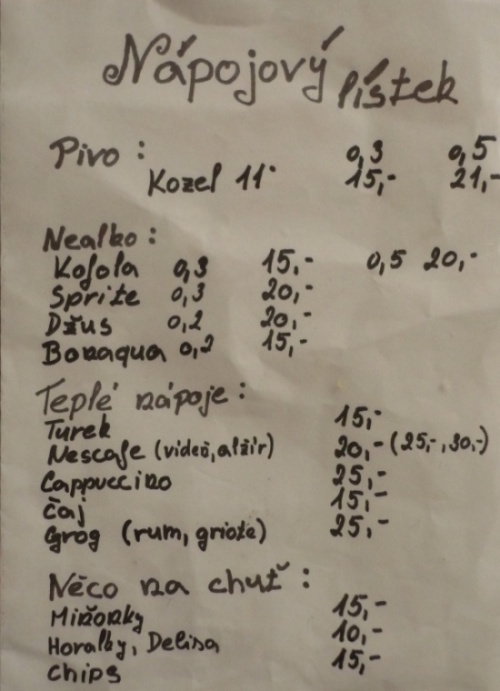 Nápojový lístek
Pivo : 0,3 0,5
Kozel 11° 15,- 21,-
Nealko :
Kofola 0,3 15,- 0,5 20,-
Sprite 0,3 20,-
Džus 0,2 20,-
Bonaqua 0,2 15,-
Teplé nápoje :
Turek 15,-
Nescafe (videň, alžír) 20,- (25,-, 30,-)
Cappuccino 25,-
Čaj 15,-
Grog (rum, griote) 25,-
Něco na chuť :
Miňonky 15,-
Horalky, Delisa 10,-
Chips 15,-